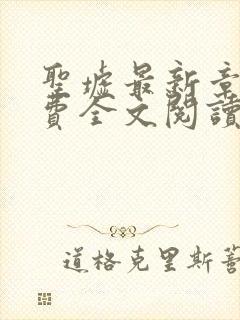 聖墟最新章
費全文閱讀
道格克里斯著